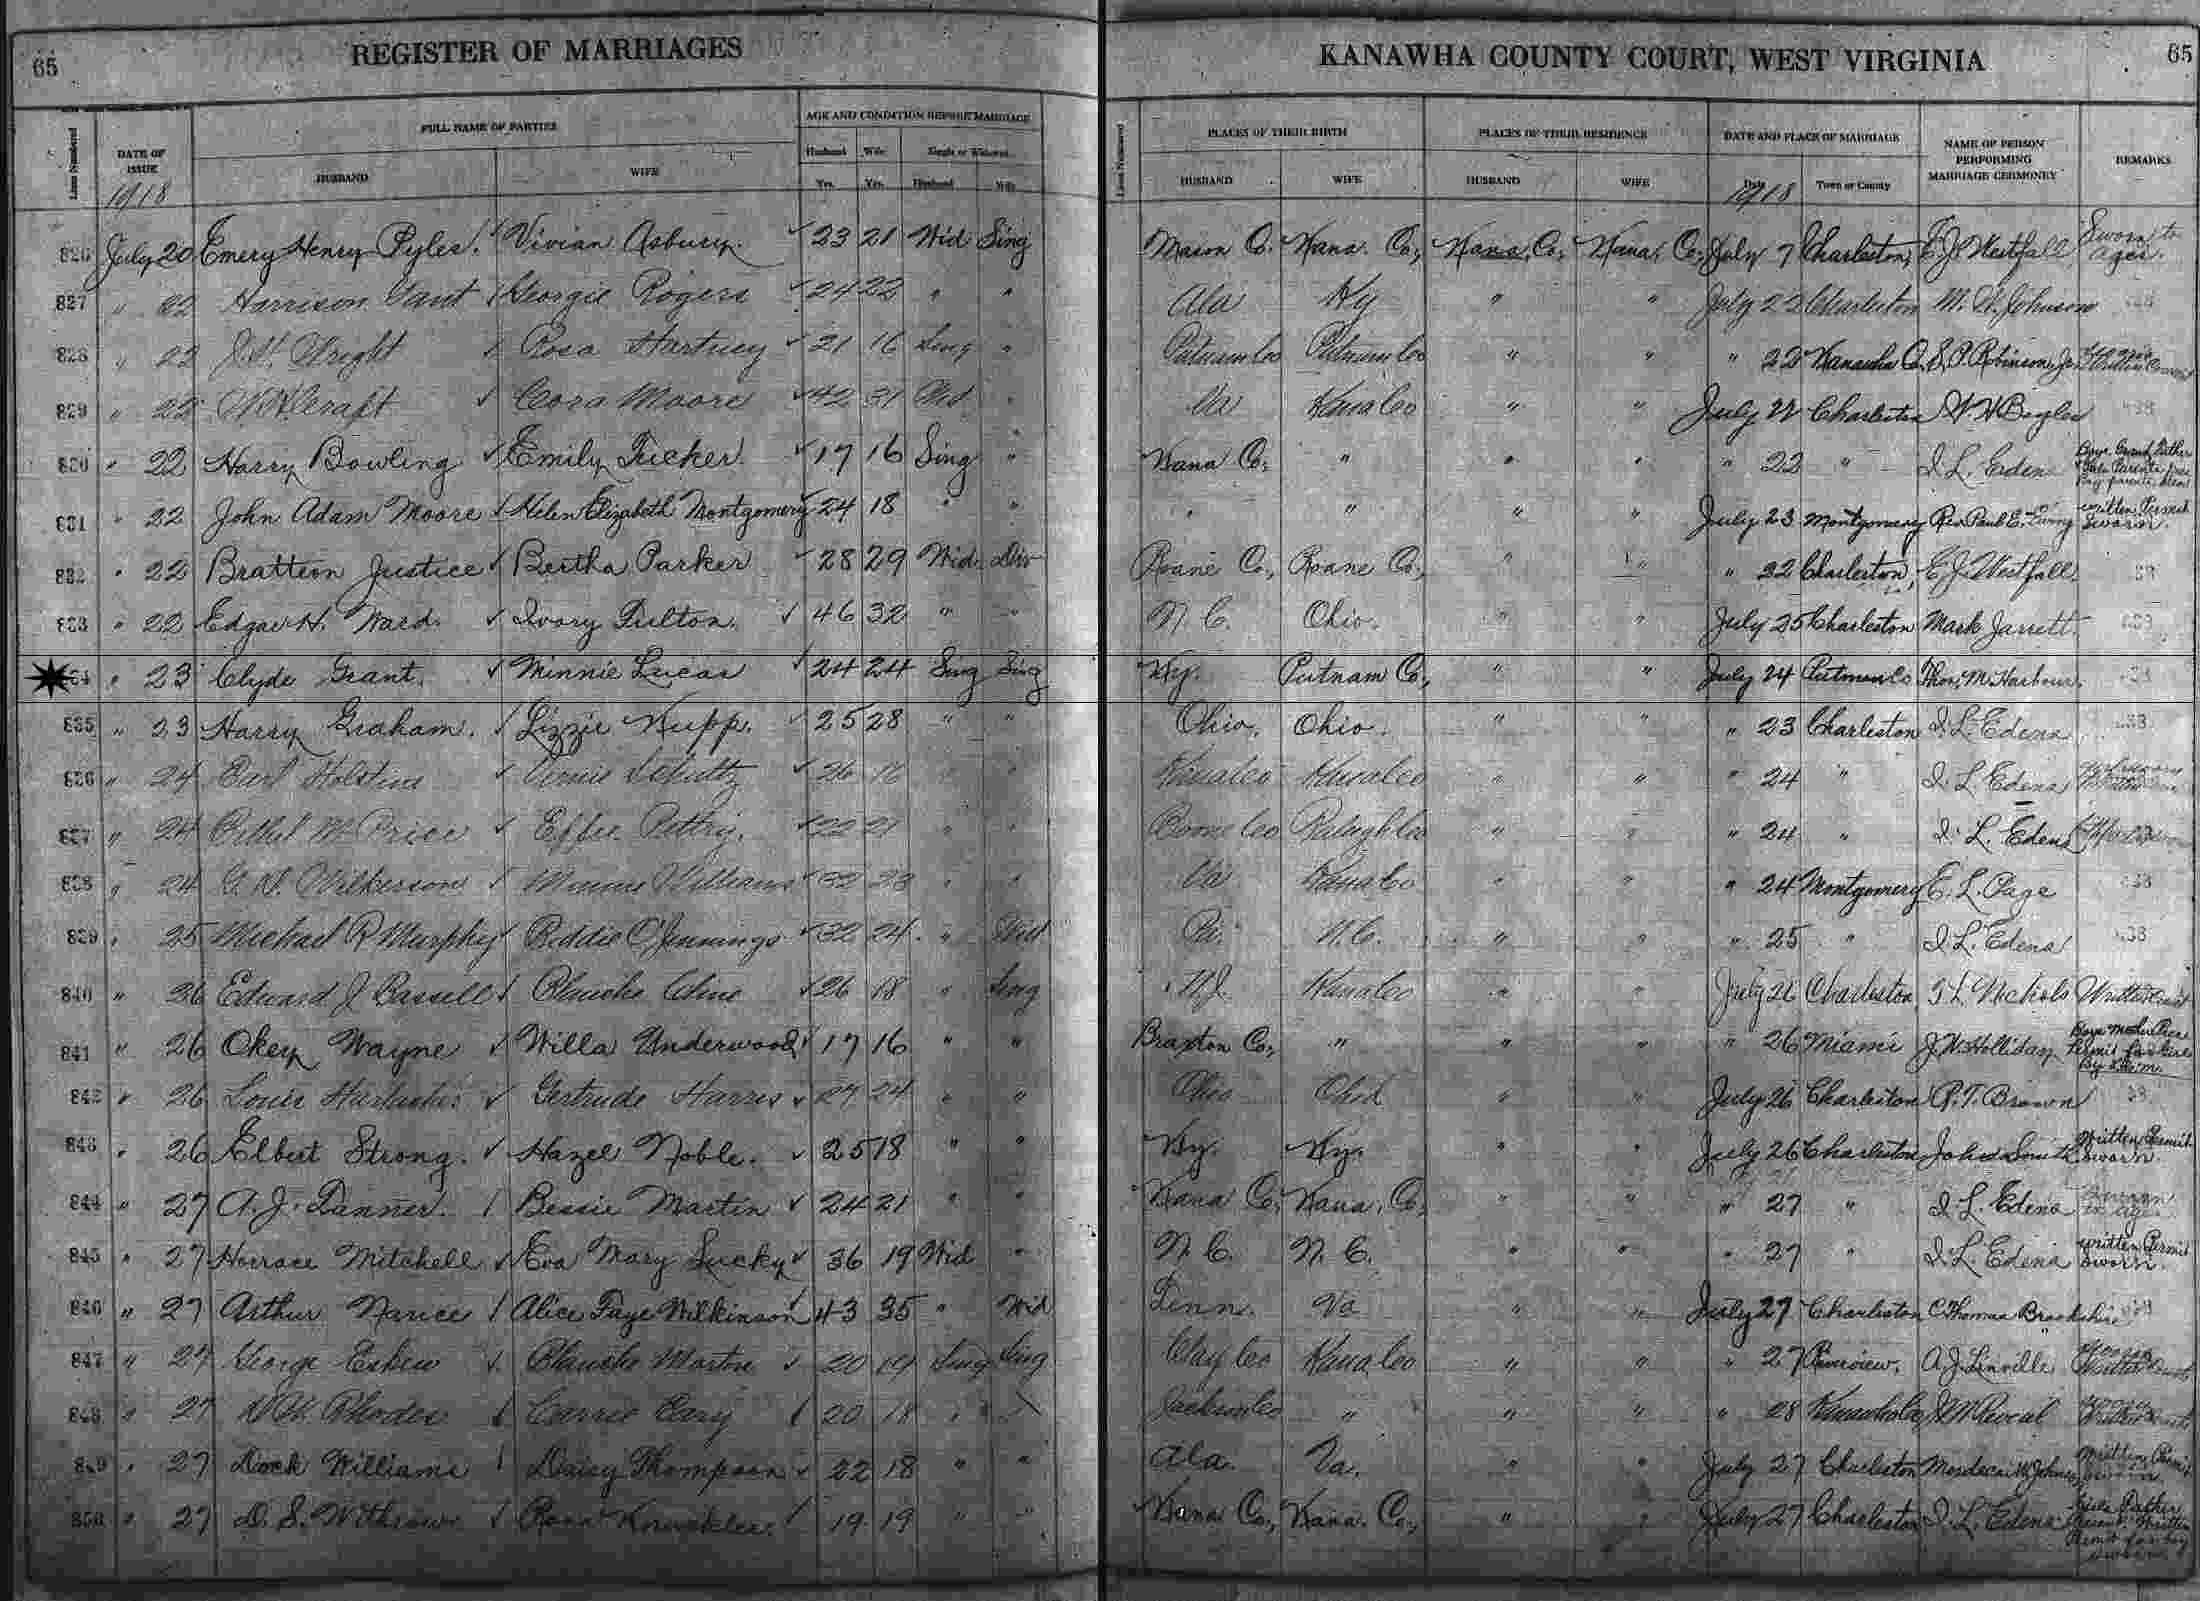 65 REGISTER OF MARRIAGES KANAWHA COUNTY COURT, WEST VIRGINIA 65
Lines Numbered DATE OF ISSUE FULL NAME OF PARTIES AGE AND CONDITION BEFORE MARRIAGE Lines Numbered PLACES OF THEIR BIRTH PLACES OF THEIR RESIDENCE DATE AND PLACE OF MARRIAGE NAME OF PERSON PERFORMING MARRIAGE CERMONEY REMARKS
HUSBAND WIFE Husband Wife Single or Widowed HUSBAND WIFE HUSBAND WIFE Date Town or County
1918 Yrs. Yrs. Husband Wife 1918
826 July 20 Emery Henry Pyles. Vivian Asbury. 23 21 Wid Sing Mason Co. Kana. Co., Kana. Co., Kana. Co., July 7 Charleston, E. J. Westfall Sworn to ages.
827 " 22 Harrison Gant Georgie Rogers 24 22 " " Ala Ky " " July 22 Charleston M. W. Johnson
828 " 22 J. H. Wright Rosa Hartney 21 16 Sing " Putnam Co Putnam Co " " " 22 Kanawha Co. S. P. Robinson, Jr.
829 " 22 Cora Moore 42 31 Wid " Va Kana Co " " July 22 Charleston
830 " 22 Harry Bowling Emily Tucker. 17 16 Sing " Kana Co., " " " " 22 " I. L. Eden
831 " 22 John Adam Moore Helen Elizabeth Montgomery 24 18 " " " " " " July 23 Montgomery Rev. Paul E. written Permit Sworn.
832 " 22 Bratteon Justice Bertha Parker 28 29 Wid. Div Roane Co., Roane Co., " " " 22 Charleston, E. J. Westfall.
833 " 22 Edgar H. Ward. Ivory Fulton. 46 32 " " N. C. Ohio. " " July 25 Charleston Mark Jarrett.
834 " 23 Clyde Grant. Minnie Lucas 24 24 Sing Sing Ky. Putnam Co., " " July 24 Putman Co Thos. M. Harbour.
835 " 23 Harry Graham. Lizzie Kupp. 25 28 " " Ohio. Ohio. " " " 23 Charleston I. L. Edens
836 " 24 Earl Holstine Schultz 26 16 " " Kana Co Kana Co " " " 24 " I. L. Edens
837 " 24 Price Effie Pettry. 22 21 " " Boone Co Raleigh Co " " " 24 " I. L. Edens
838 " 24 G. W. Wilkerson Williams 32 28 " " Va Kana Co " " " 24 Montgomery E. L. Page
839 " 25 Michael P Murphy Biddie O'Jennings 32 24 " Wid Pa. N. C. " " " 25 " I. L. Edens
840 " 26 Edward J Cassell Blanche Cline 26 18 " Sing N. J. Kana Co " " July 26 Charleston, Nichols
841 " 26 Okey Wayne Willa Underwood 17 16 " " Braxton Co., " " " " 26 Miami J. W. Holliday
842 " 26 Louis Gertrude Harris 27 24 " " Ohio Ohio " " July 26 Charleston P. T. Brown
843 " 26 Elbert Strong. Hazel Noble. 25 18 " " Ky. Ky. " " July 26 Charleston John Smith Written Permit Sworn.
844 " 27 A. J. Danner. Bessie Martin 24 21 " " Kana Co., Kana. Co., " " " 27 " I. L. Edens Sworn to ages
845 " 27 Horrace Mitchell Eva Mary Lucky 36 19 Wid " N. C. N. C. " " " 27 " I. L. Edens written Permit Sworn.
846 " 27 Arthur Narice Alice Faye Wilkinson 43 35 " Wid Tenn. Va " " July 27 Charleston C. Thomas Brookshire
847 " 27 George Eskew Blanche Morton 20 19 Sing Sing Clay Co Kana Co " " " 27 A. J. Linville
848 " 27 Rhodes Carrie Cary 20 18 " " Jackson Co " " " " 28 Kanawha Co
849 " 27 Dock Williams Daisy Thompson 22 18 " " Ala. Va. " " July 27 Charleston Mordecai W. Johnson
850 " 27 D. S. Withrow 19 19 " " Kana Co., Kana. Co., " " July 27 Charleston I. L. Edens